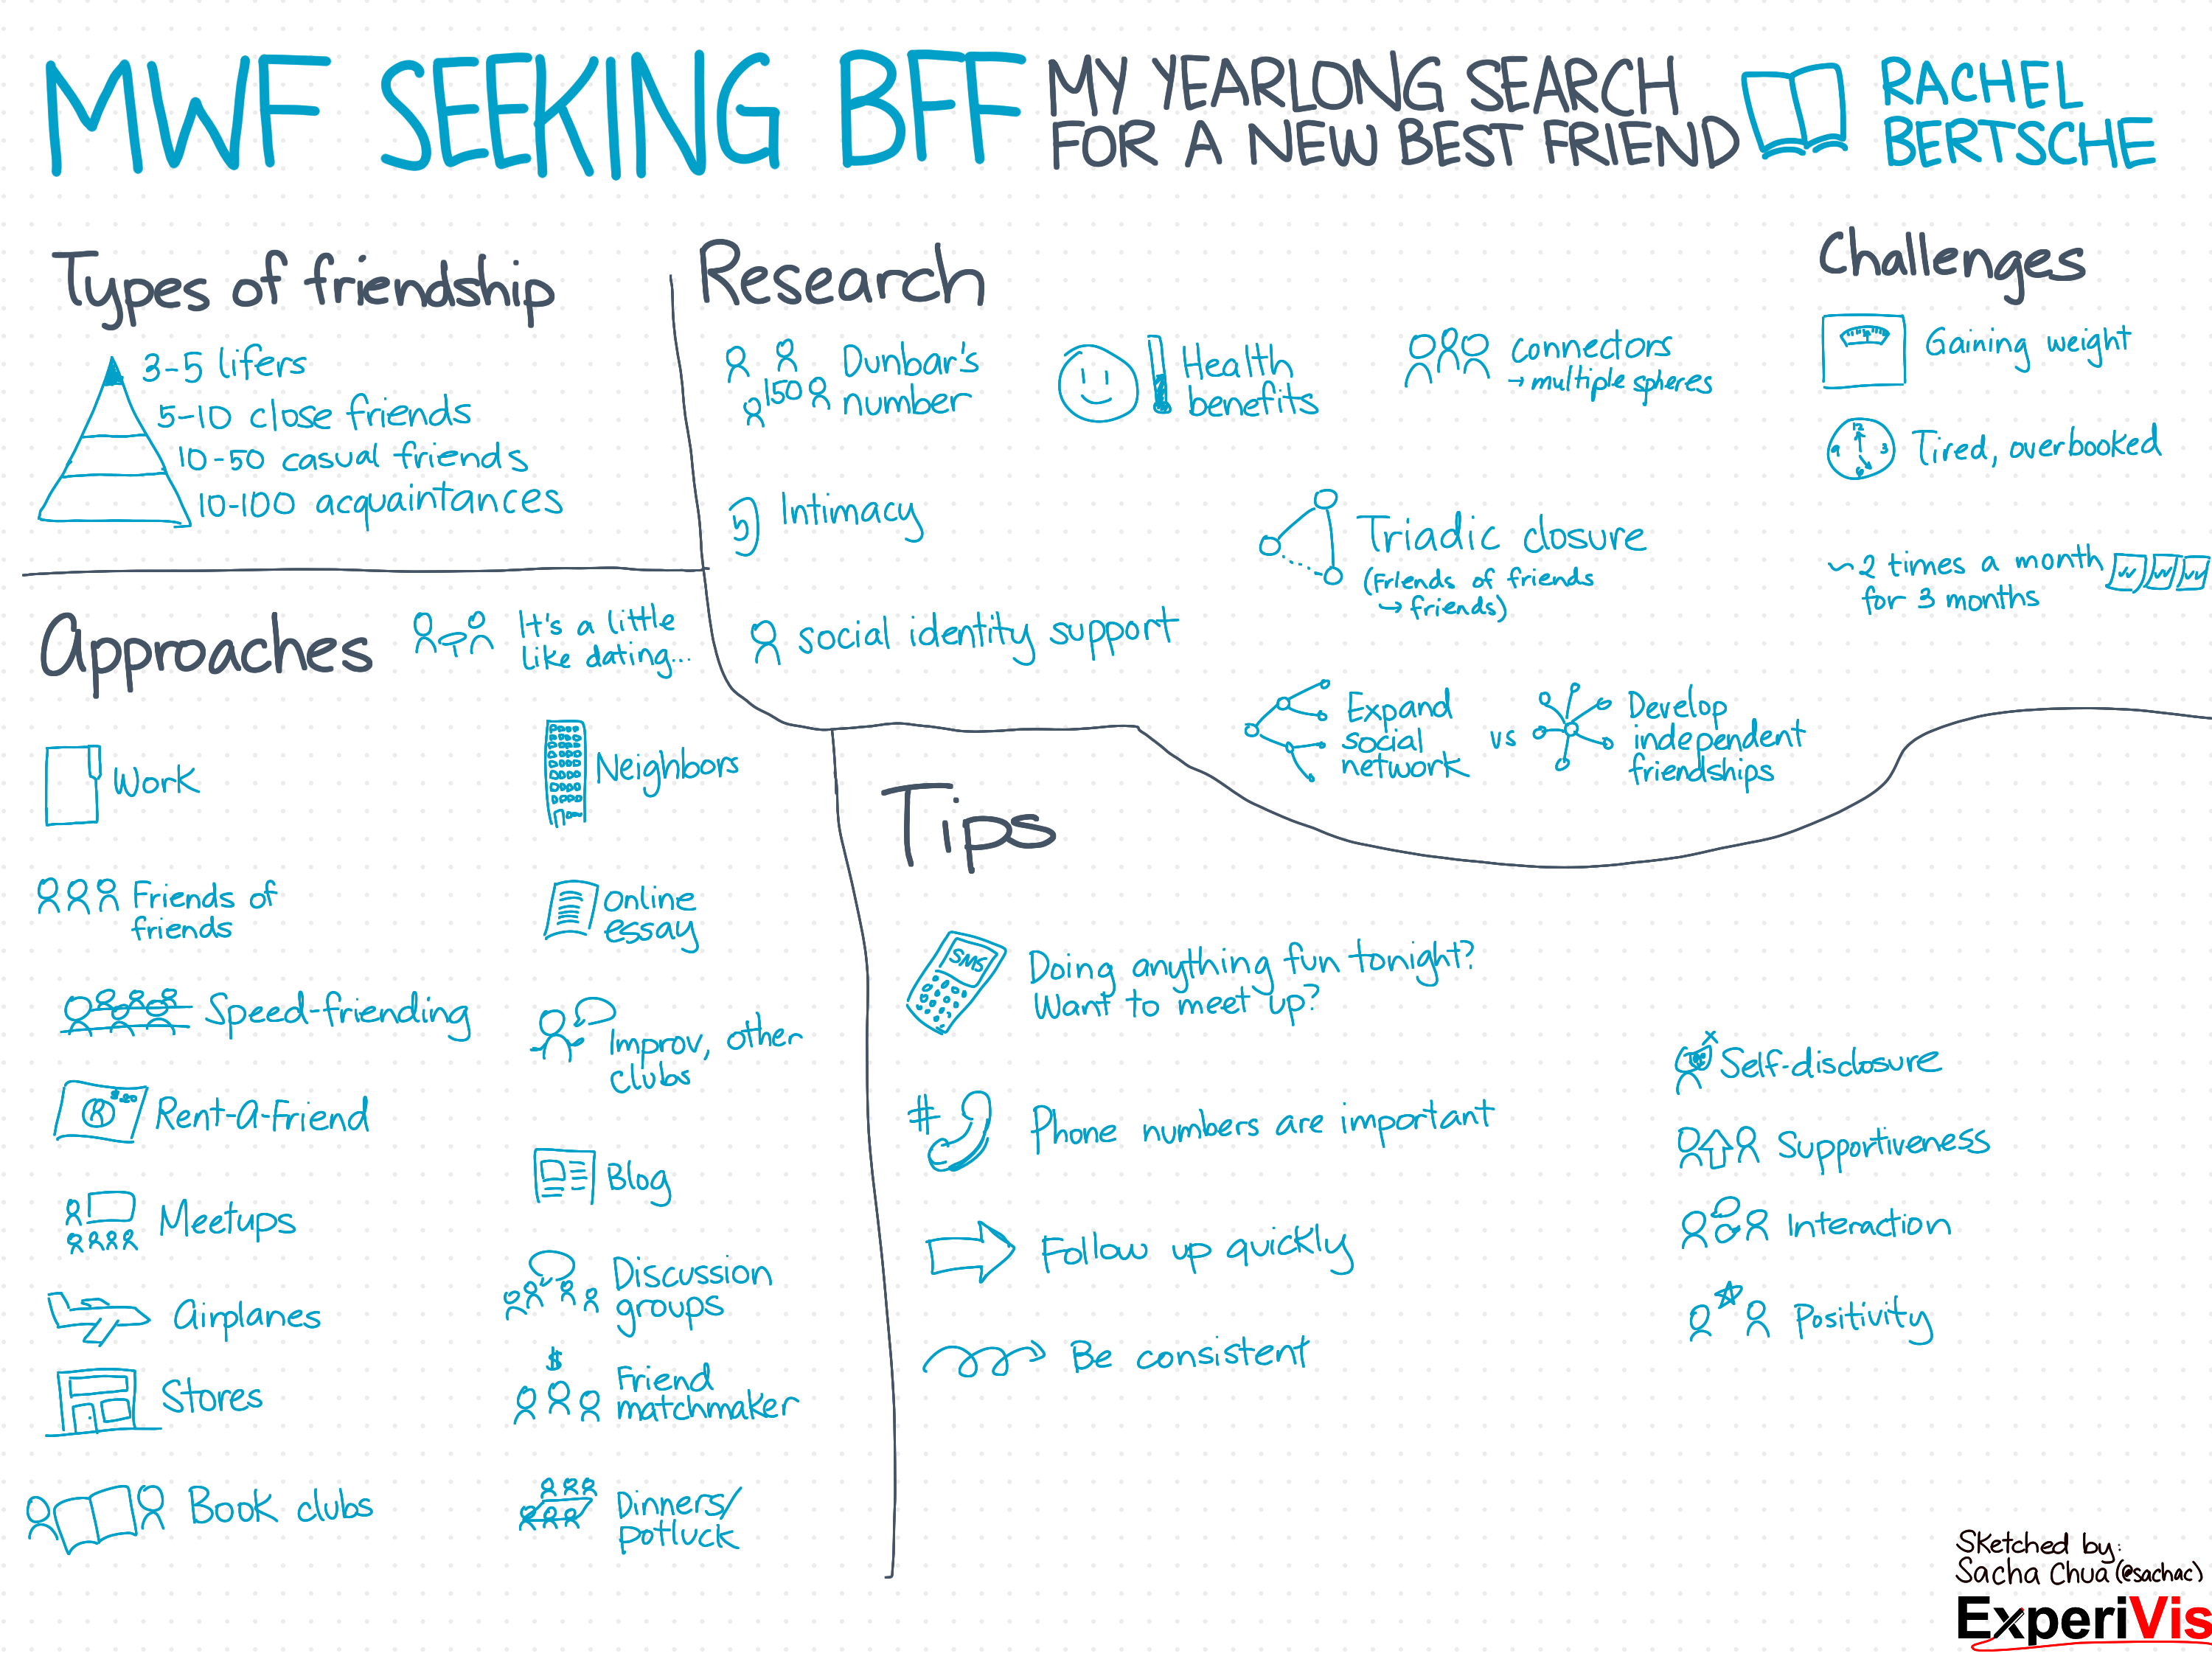 MWF SEEKING BFF
MY YEARLONG SEARCH
FOR A NEW BEST FRIEND
RACHEL
BERTSCHE
Types of friendship
3-5 lifers
5-10 close friends
10-50 casual friends
10-100 acquaintances
Research
150
Dunbar's
number
Health
benefits
connectors
→ multiple spheres
5
Intimacy
Triadic closure
(Friends of friends
↪ friends)
social identity support
Expand
social
network
vs
Develop
independent
friendships
Challenges
Gaining weight
12
9 3
6
Tired, overbooked
~2 times a month
for 3 months
Approaches
It's a little
like dating...
Work
Friends of
friends
Speed-friending
$20
R
Rent-a-Friend
Meetups
Airplanes
Stores
Book clubs
Neighbors
Online
essay
Improv, other
clubs
Blog
Discussion
groups
$
Friend
matchmaker
Dinners/
potluck
Tips
SMS
Doing anything fun tonight?
Want to meet up?
#
Phone numbers are important
Follow up quickly
Be consistent
Self-disclosure
Supportiveness
Interaction
Positivity
Sketched by:
Sacha Chua (@sachac)
ExperiVis